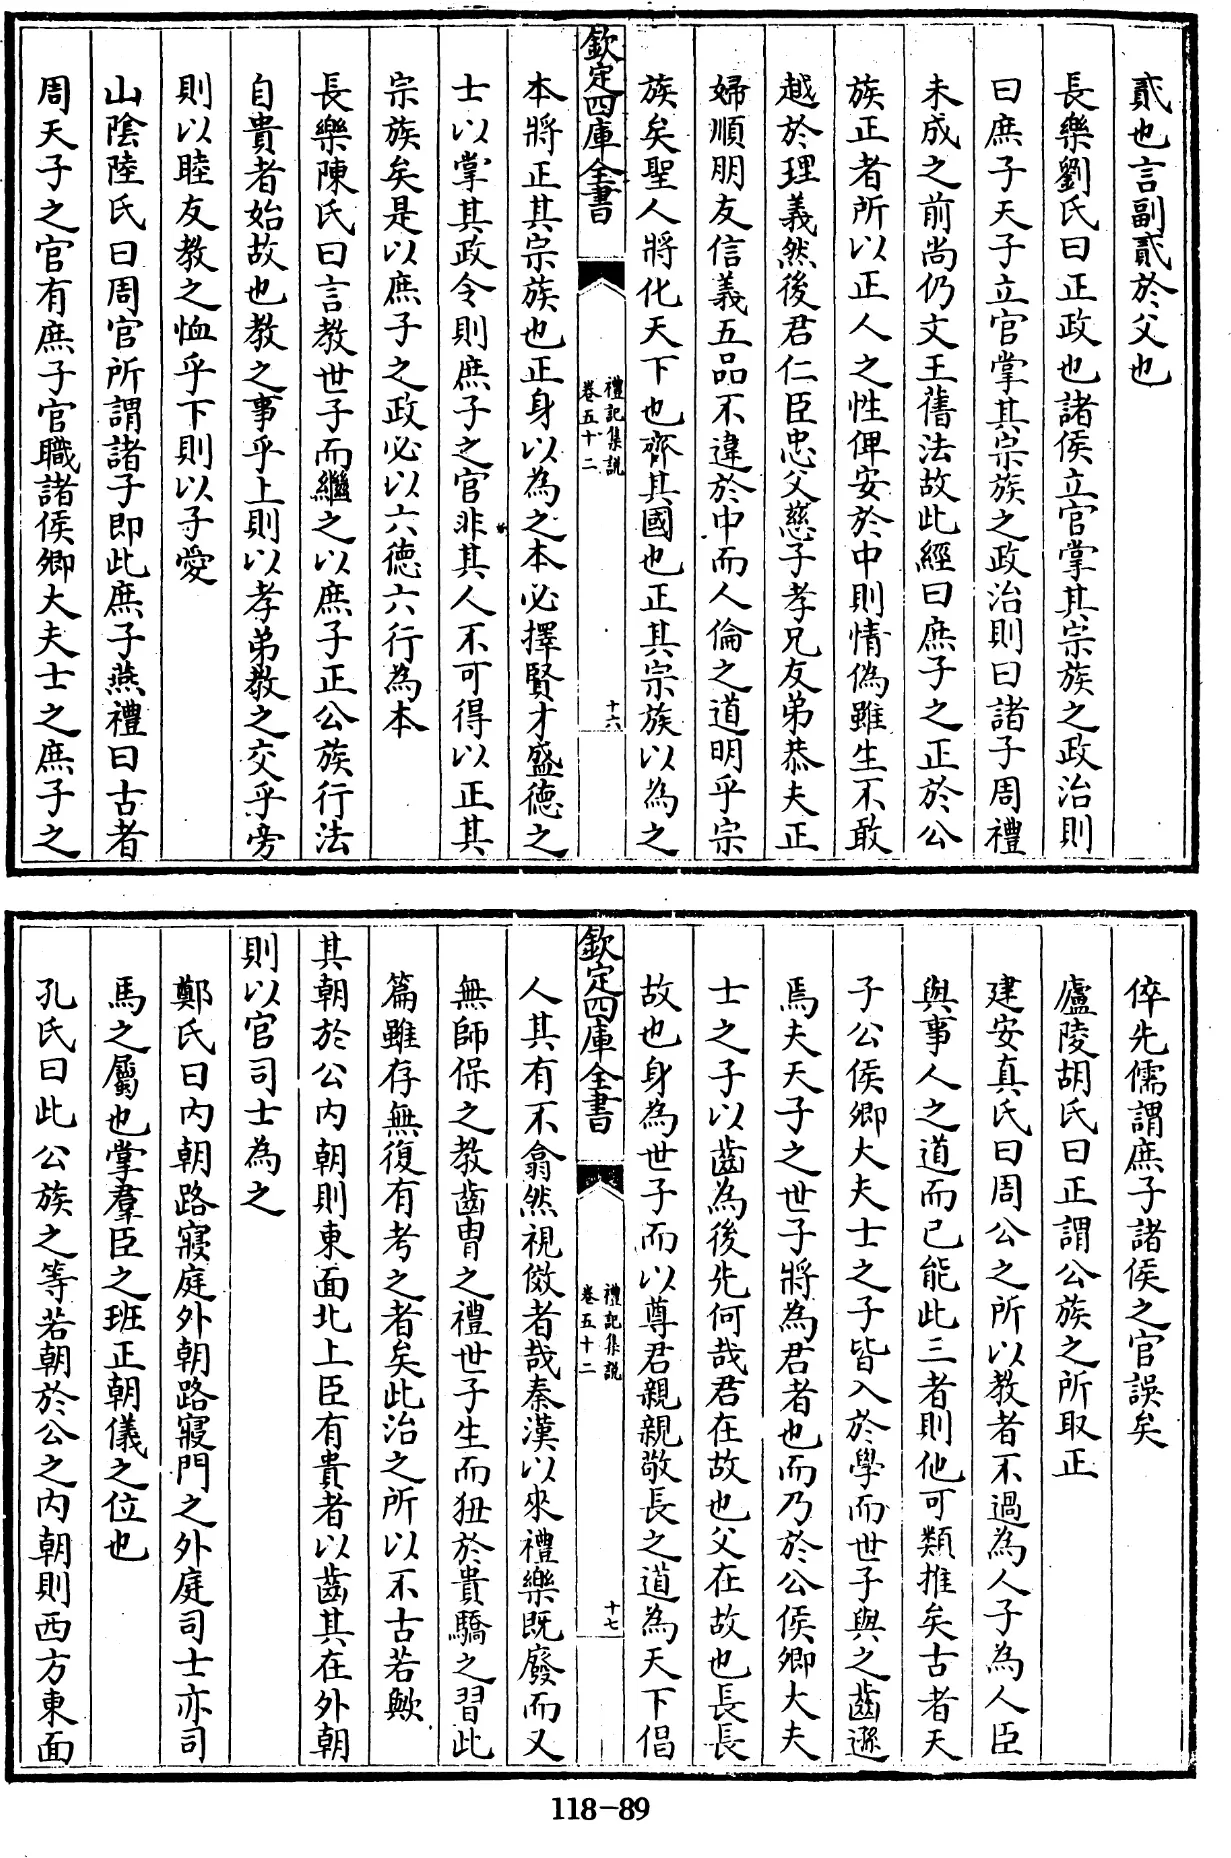 貳也言副貳於父也
長樂劉氏曰正政也諸侯立官掌其宗族之政治則
曰庶子天子立官掌其宗族之政治則曰諸子周禮
未成之前尚仍文王舊法故此經曰庶子之正於公
族正者所以正人之性俾安於中則情偽雖生不敢
越於理義然後君仁臣忠父慈子孝兄友弟恭夫正
婦順朋友信義五品不違於中而人倫之道明乎宗
族矣聖人將化天下也齊其國也正其宗族以為之
欽定四庫全書
禮記集說
卷五十二
十六
本將正其宗族也正身以為之本必擇賢才盛德之
士以掌其政令則庶子之官非其人不可得以正其
宗族矣是以庶子之政必以六德六行為本
長樂陳氏曰言教世子而繼之以庶子正公族行法
自貴者始故也教之事乎上則以孝弟教之交乎旁
則以睦友教之恤乎下則以子愛
山陰陸氏曰周官所謂諸子即此庶子燕禮曰古者
周天子之官有庶子官職諸侯卿大夫士之庶子之
倅先儒謂庶子諸侯之官誤矣
廬陵胡氏曰正謂公族之所取正
建安真氏曰周公之所以教者不過為人子為人臣
與事人之道而已能此三者則他可類推矣古者天
子公侯卿大夫士之子皆入於學而世子與之齒遜
焉夫天子之世子將為君者也而乃於公侯卿大夫
士之子以齒為後先何哉君在故也父在故也長長
故也身為世子而以尊君親親敬長之道為天下倡
欽定四庫全書
禮記集說
卷五十二
十七
人其有不翕然視傚者哉秦漢以來禮樂既廢而又
無師保之教齒胄之禮世子生而狃於貴驕之習此
篇雖存無復有考之者矣此治之所以不古若歟
其朝於公內朝則東面北上臣有貴者以齒其在外朝
則以官司士為之
鄭氏曰內朝路寢庭外朝路寢門之外庭司士亦司
馬之屬也掌羣臣之班正朝儀之位也
孔氏曰此公族之等若朝於公之內朝則西方東面
118-89